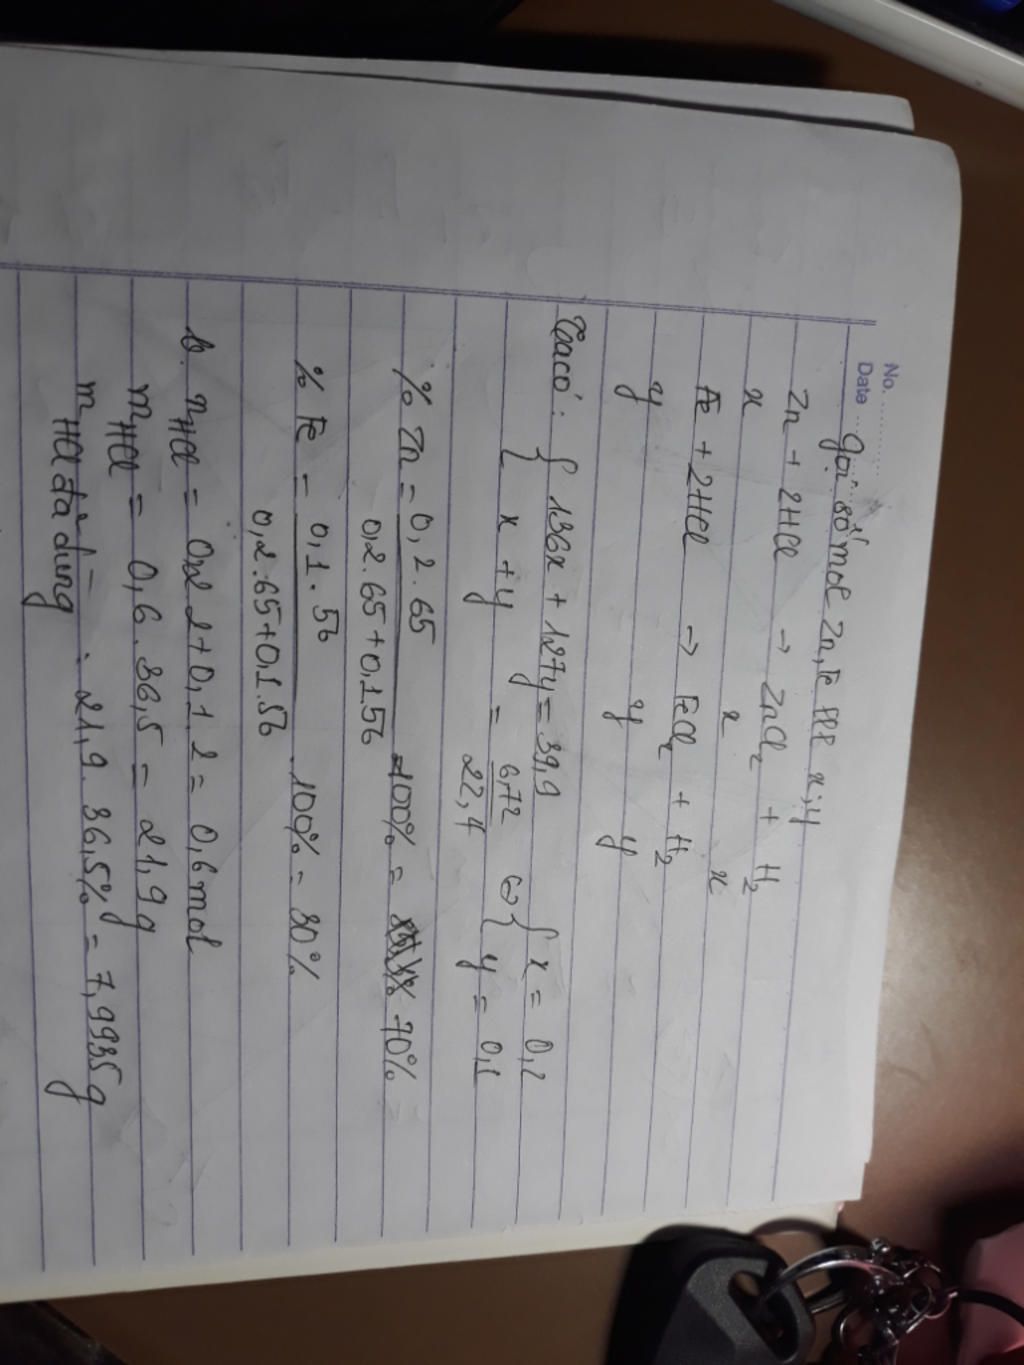 No.
Date
Gọi số mol Zn, Fe lll x;y
Zn + 2HCl → ZnCl2 + H2
x x x
Fe + 2HCl → FeCl2 + H2
y y y
Ta có: { 136x + 127y = 39,9
{ x + y = 6,72 / 22,4 ⇔ { x = 0,2
{ y = 0,1
% Zn = 0,2.65 / 0,2.65+0,1.56 .100% = 70%
% Fe = 0,1.56 / 0,2.65+0,1.56 .100% = 30%
b. nHCl = 0,2.2+0,1.2 = 0,6mol
mHCl = 0,6.36,5 = 21,9g
mHCl đã dùng = 21,9.36,5% = 7,9935g